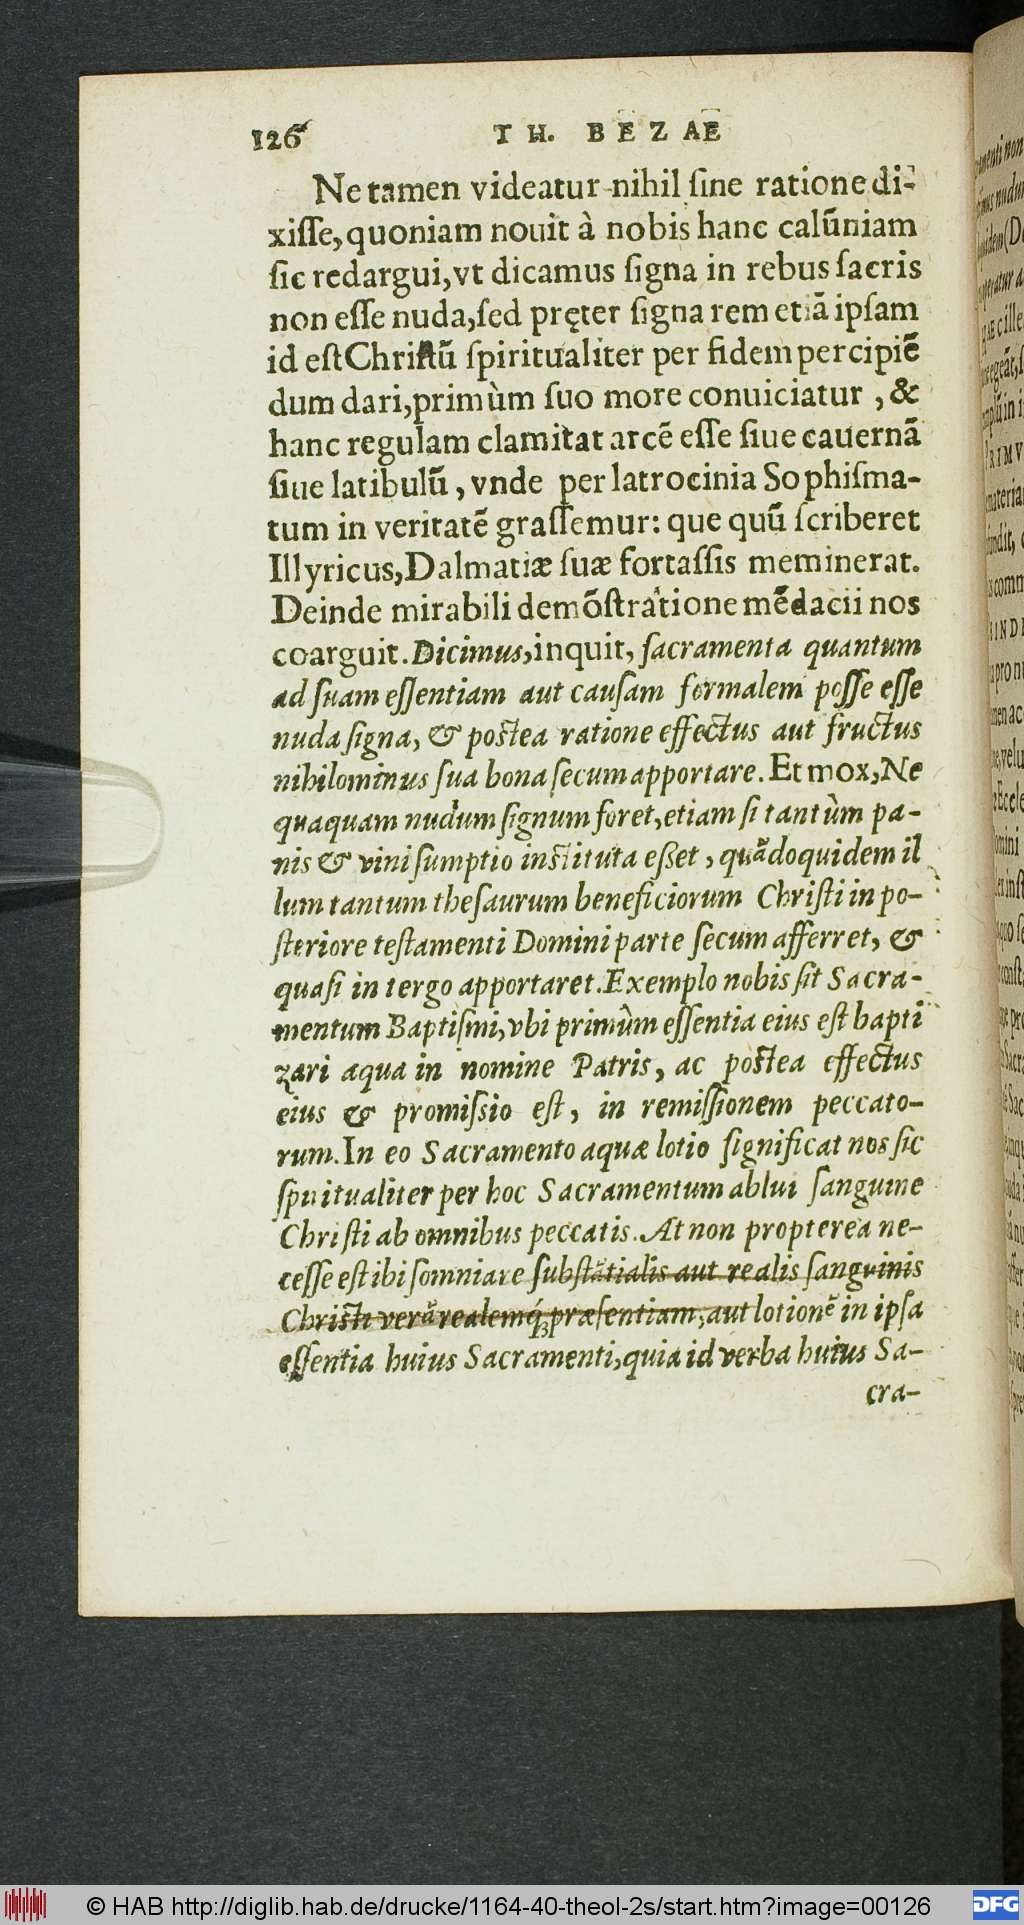 126 TH. BEZAE
Ne tamen videatur nihil ſine ratione di-
xiſſe, quoniam nouit à nobis hanc calūniam
ſic redargui, vt dicamus ſigna in rebus ſacris
non eſſe nuda, ſed pręter ſigna rem etiā ipſam
id eſt Chriſtū ſpiritualiter per fidem percipiē
dum dari, primùm ſuo more conuiciatur, &
hanc regulam clamitat arcē eſſe ſiue cauernā
ſiue latibulū, vnde per latrocinia Sophiſma-
tum in veritatē graſſemur: que quū ſcriberet
Illyricus, Dalmatiæ ſuæ fortaſſis meminerat.
Deinde mirabili demōſtratione mēdacii nos
coarguit. Dicimus, inquit, ſacramenta quantum
ad ſuam eſſentiam aut cauſam formalem poſſe eſſe
nuda ſigna, & poſtea ratione effectus aut fructus
nihilominus ſua bona ſecum apportare. Et mox, Ne
quaquam nudum ſignum foret, etiam ſi tantùm pa-
nis & vini ſumptio inſtituta eſſet, quādoquidem il
lum tantum theſaurum beneficiorum Chriſti in po-
ſteriore teſtamenti Domini parte ſecum afferret, &
quaſi in tergo apportaret. Exemplo nobis ſit Sacra-
mentum Baptiſmi, vbi primùm eſſentia eius eſt bapti
zari aqua in nomine Patris, ac poſtea effectus
eius & promiſsio eſt, in remiſſionem peccato-
rum. In eo Sacramento aquæ lotio ſignificat nos ſic
ſpiritualiter per hoc Sacramentum ablui ſanguine
Chriſti ab omnibus peccatis. At non propterea ne-
ceſſe eſt ibi ſomniare ſubſtātialis aut realis ſanguinis
Chriſti verā realemq́; præſentiam, aut lotionē in ipſa
eſſentia huius Sacramenti, quia id verba huius Sa-
cra-
© HAB http://diglib.hab.de/drucke/1164-40-theol-2s/start.htm?image=00126
DFG